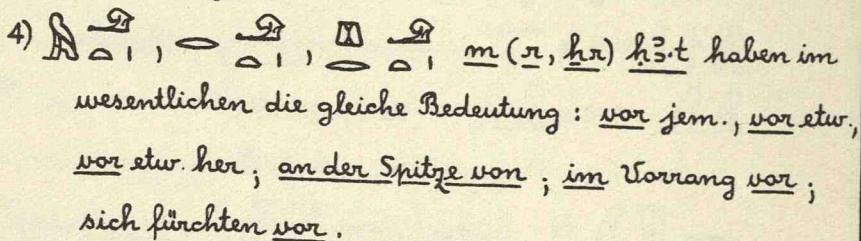 4) 𓅓𓄂𓏏𓏤, 𓂋𓄂𓏏𓏤, 𓌨𓂋𓄂𓏏𓏤 m (r, ẖr) ḥꜣ.t haben im
wesentlichen die gleiche Bedeutung : vor jem., vor etw.,
vor etw. her ; an der Spitze von ; im Vorrang vor ;
sich fürchten vor .